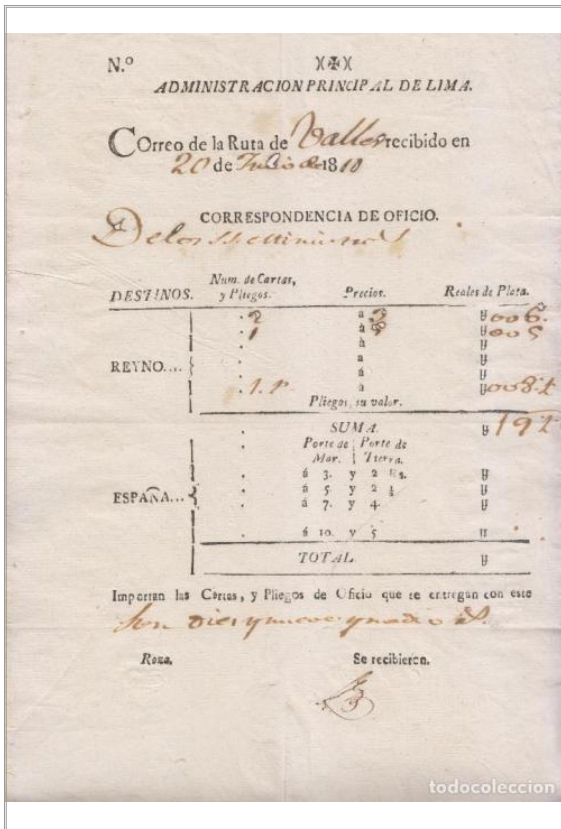 N.º )(✠)(
ADMINISTRACION PRINCIPAL DE LIMA.
COrreo de la Ruta de Valles recibido en
20 de Julio de 1810
CORRESPONDENCIA DE OFICIO.
De los
DESTINOS. Num. de Cartas, y Pliegos. Precios. Reales de Plata.
. 2 à 3 y 006.
. 1 à 5 y 005
. à y
REYNO.... . a y
. á y
. 1. P. à y 008.½
Pliegos, su valor.
. SUMA. y 19½
Porte de Mar. Porte de Tierra.
. á 3. y 2 Rs. y
ESPAÑA... . á 5. y 2 ½ y
. à 7. y 4. y
. á 10. y 5 y
TOTAL. y
Importan las Cartas, y Pliegos de Oficio que se entregan con este
Son diez y nueve y medio rs.
Roza. Se recibieron.
todocoleccion